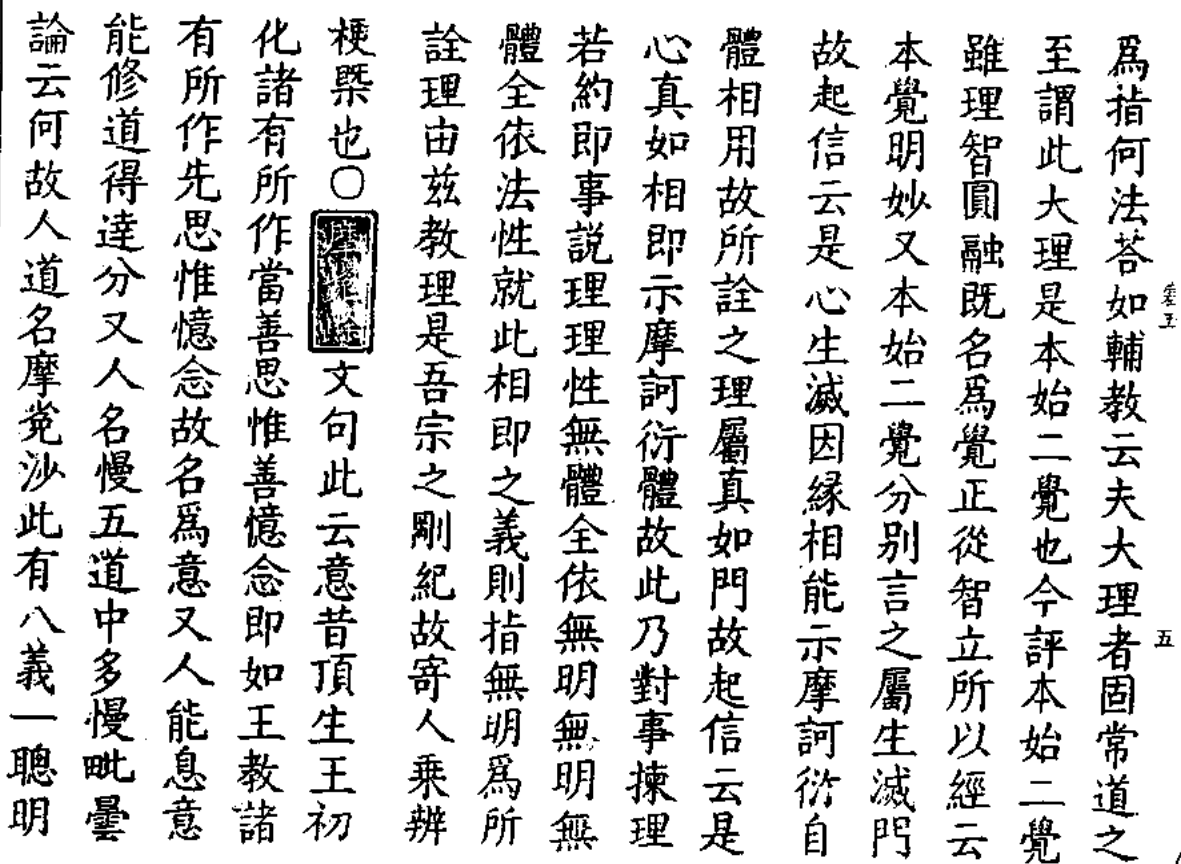 爲指何法荅如輔教云夫大理者固常道之
至謂此大理是本始二覺也今評本始二覺
雖理智圓融既名爲覺正從智立所以經云
本覺明妙又本始二覺分别言之屬生滅門
故起信云是心生滅因緣相能示摩訶衍自
體相用故所詮之理屬真如門故起信云是
心真如相即示摩訶衍體故此乃對事揀理
若約即事説理理性無體全依無明無明無
體全依法性就此相即之義則指無明爲所
詮理由兹教理是吾宗之剛紀故寄人乗辨
梗槩也〇
文句此云意昔頂生王初
化諸有所作當善思惟善憶念即如王教諸
有所作先思惟憶念故名爲意又人能息意
能修道得達分又人名慢五道中多慢毗曇
論云何故人道名摩㝹沙此有八義一聰明
五